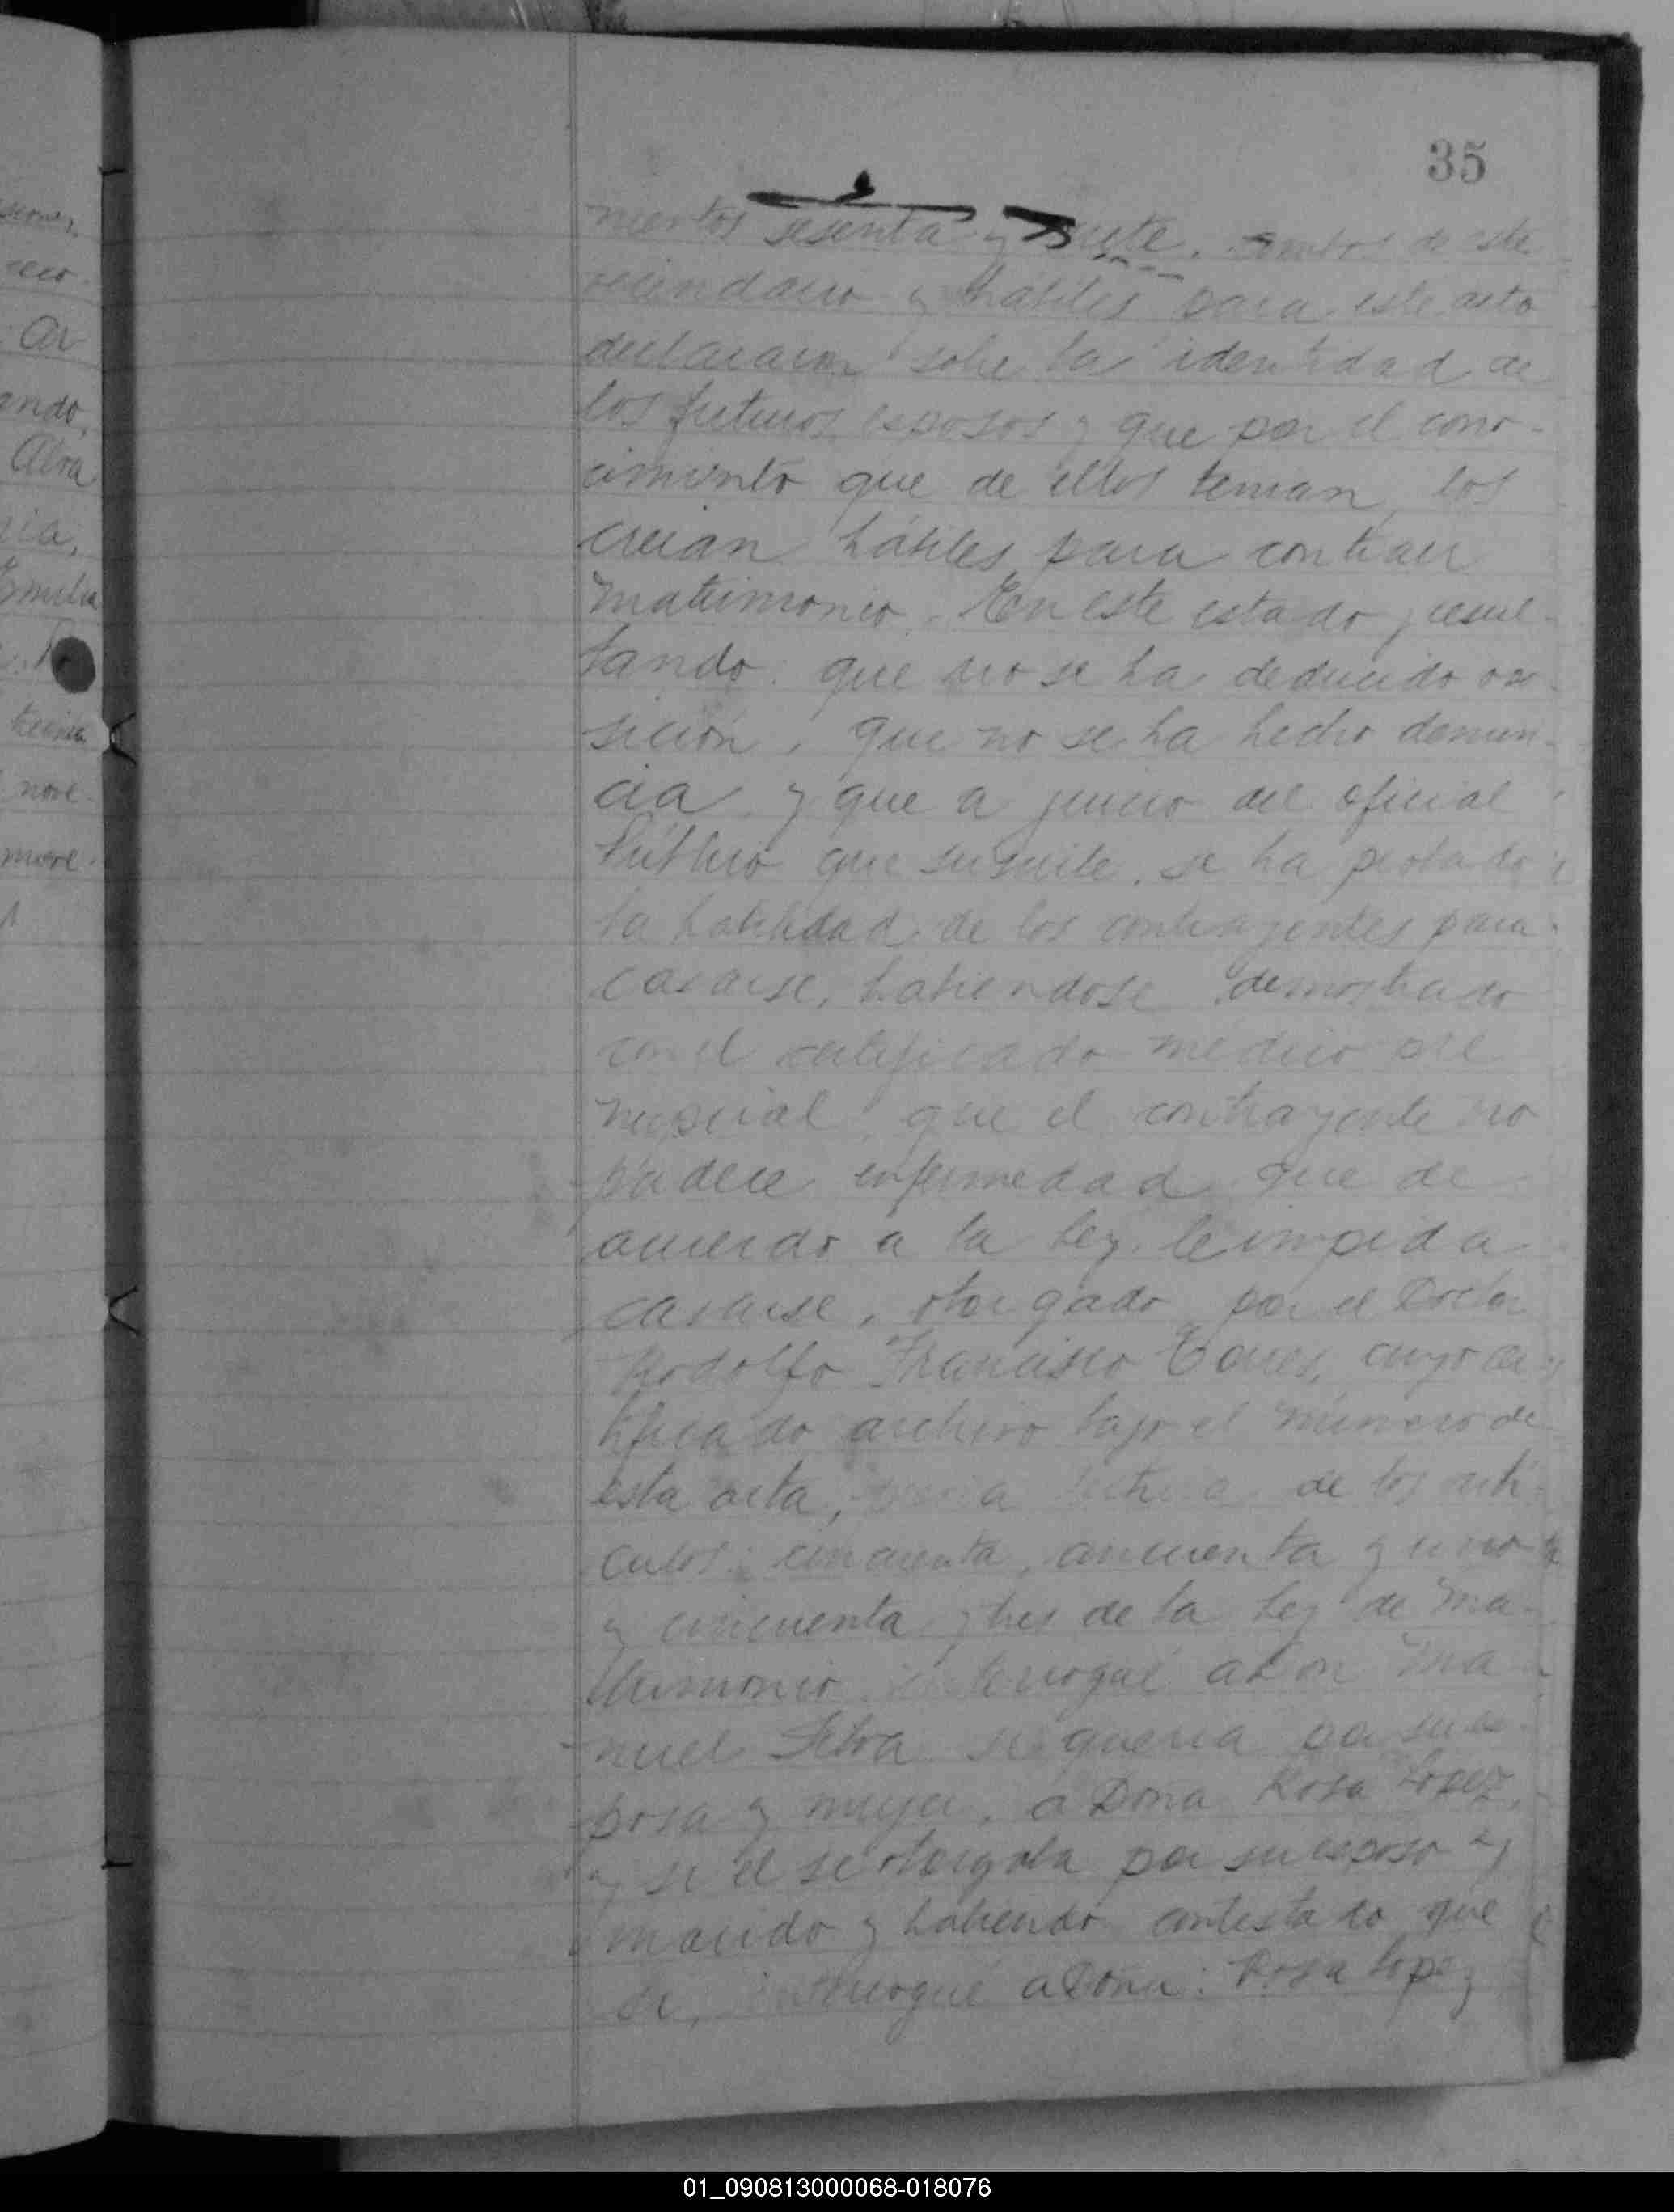 35
nientos sesenta y siete, ambos de este
vecindario y hábiles para este acto
declararon sobre la identidad de
los futuros esposos y que por el cono-
cimiento que de ellos tenian, los
creian hábiles para contraer
matrimonio. En este estado y resul-
tando: que no se ha deducido opo-
sición, que no se ha hecho denun-
cia y que a juicio del oficial
Público que suscribe, se ha probado
la habilidad de los contrayentes para
casarse, habiendose demostrado
con el certificado medico pre
nupcial que el contrayente no
padece enfermedad que de
acuerdo a la Ley le impida
casarse, otorgado por el Doctor
Rodolfo Francisco cuyo cer
tificado archivo bajo el número de
esta acta, previa lectura de los arti-
culos: cincuenta, cincuenta y uno
y cincuenta y tres de la Ley de Ma-
trimonio interrogué a Don Ma-
nuel Silva si queria por su es-
posa y mujer, a Doña Rosa Lopez,
y si el se otorgaba por su esposo y
marido y habiendo contestado que
si, interrogué a Doña: Rosa Lopez
sione,
Ar
ando,
Alva
ria,
Emilia
nove
01_090813000068-018076